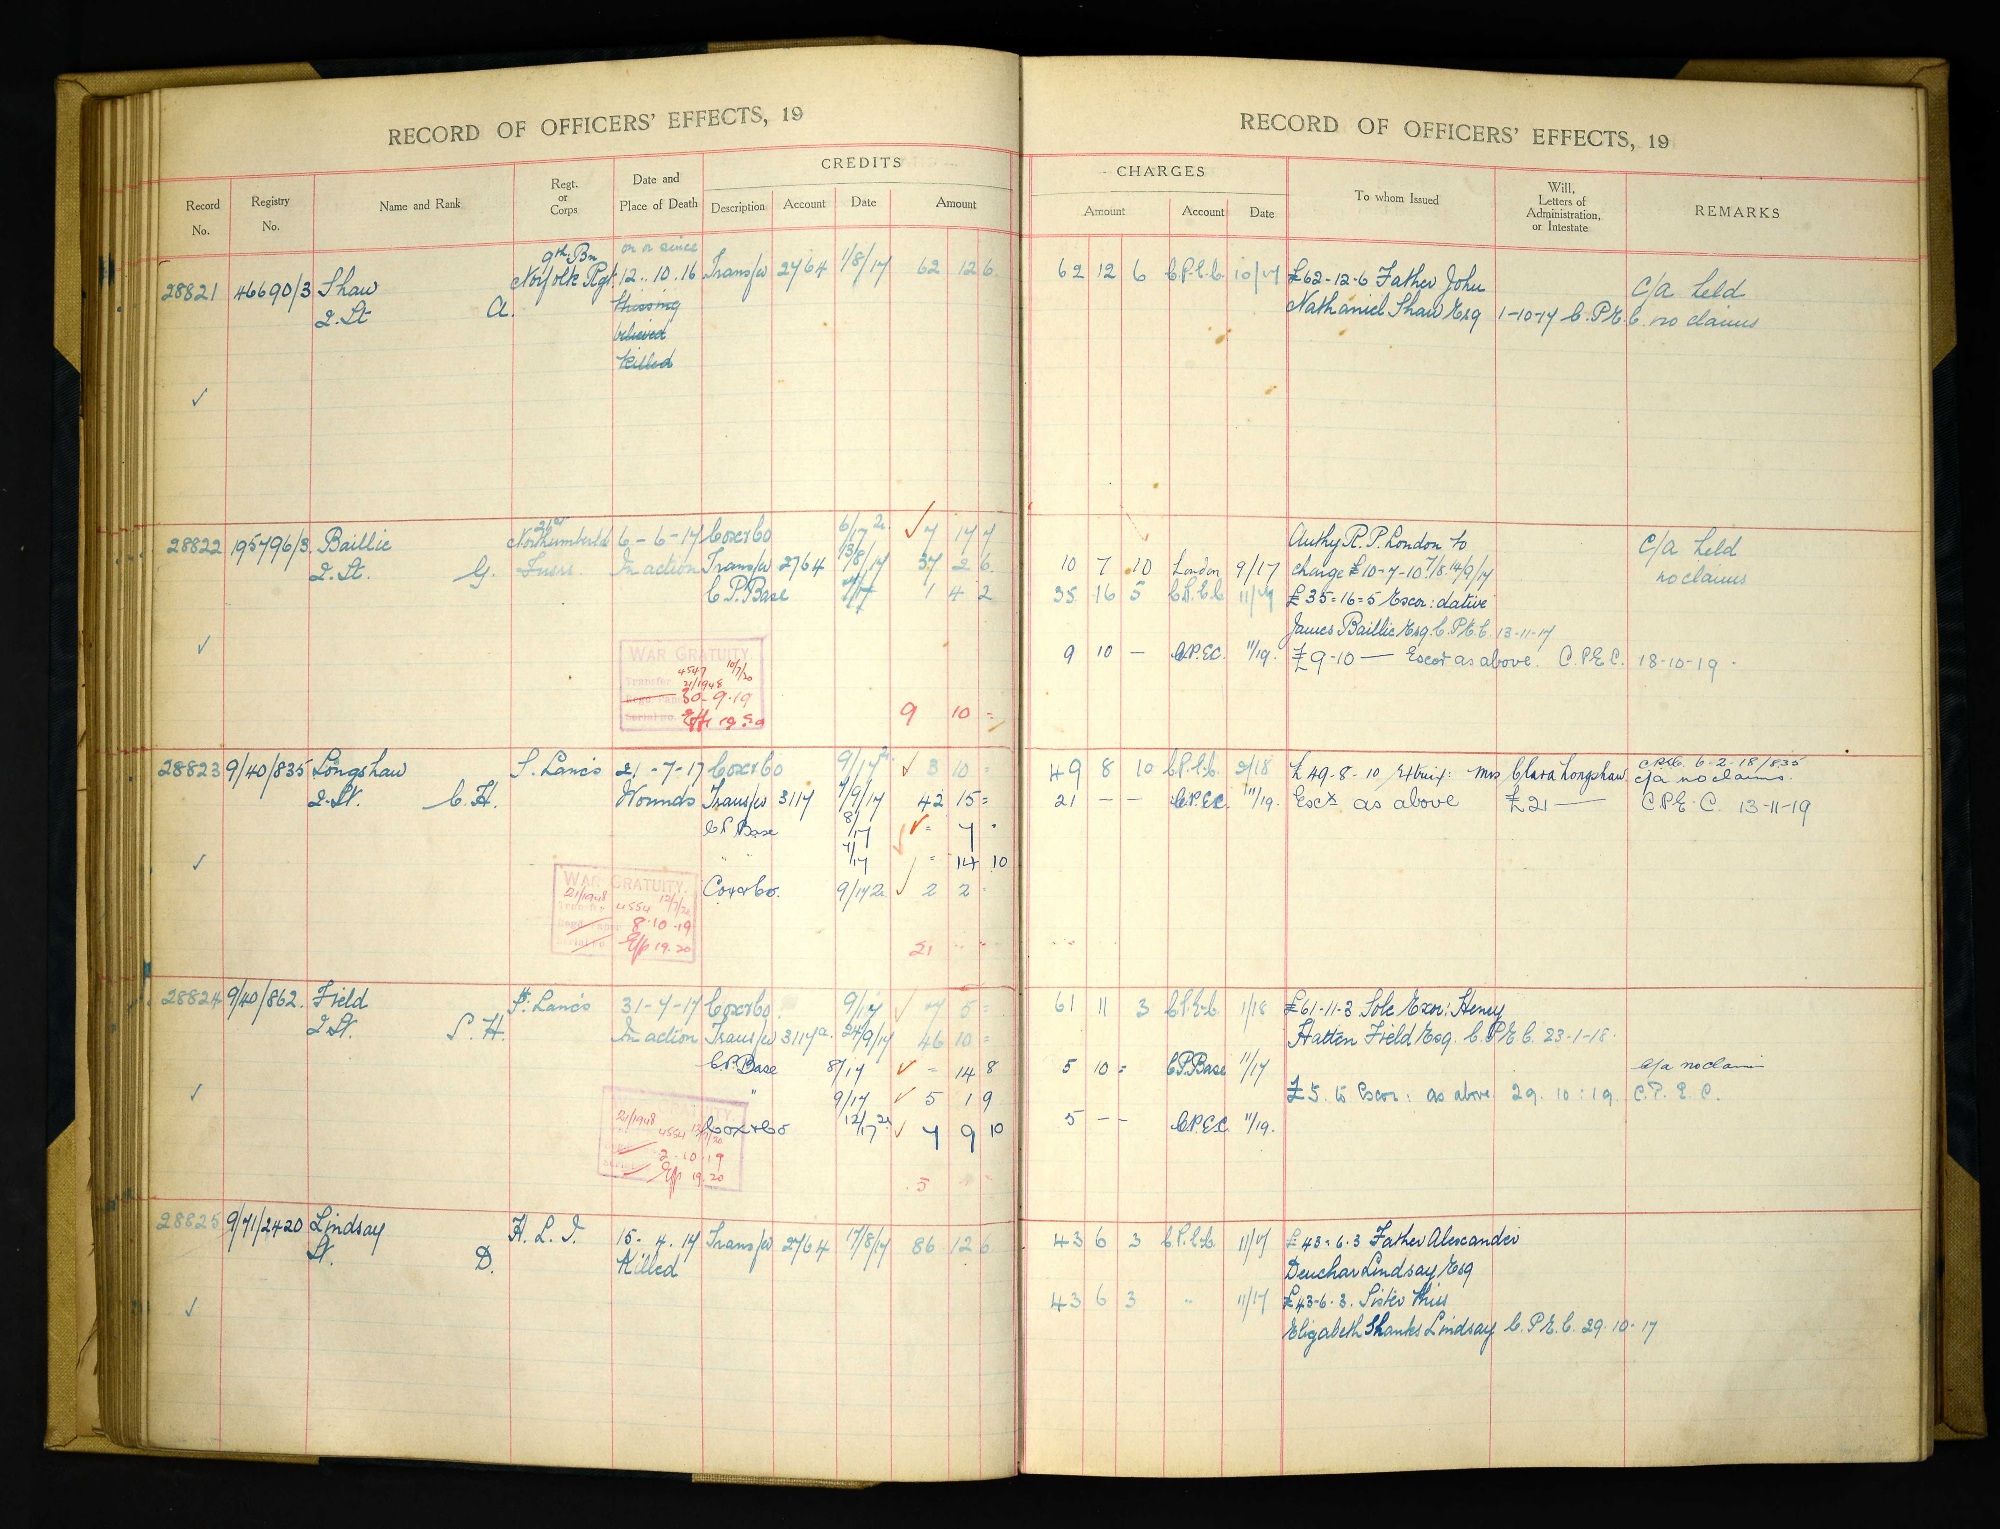 RECORD OF OFFICERS' EFFECTS, 19
Record No.
Registry No.
Name and Rank
Regt. or Corps
Date and Place of Death
CREDITS
Description
Account
Date
Amount
28821 46690/3 Shaw
2. Lt A.
9th Bn
Norfolk Rgt
on or since
12.10.16
Missing
believed
killed
Transfer 2764 1/8/17 62 12 6
28822 195796/3 Baillie
2. Lt. G.
21st
Northumberld
Fusrs.
6-6-17
In action
Cox & Co 6/17 7 17 7
Transfer 2764 13/8/17 37 2 6
C.P. Base 1 4 2
WAR GRATUITY.
4547 10/7/20
Transfer 21/1948
30-9-19
Serial no. Eff 19.20
9 10 =
28823 9/40/835 Longshaw
2. Lt. C. H.
S. Lancs
21-7-17
Wounds
Cox & Co 9/17 3 10 =
Transfer 3117 7/9/17 42 15 =
C.P. Base 8/17 = 7
" " 7/17 = 14 10
Cox & Co. 9/17 2 2 =
WAR GRATUITY.
21/1948 12/7/20
4554
8-10-19
Serial no. Eff 19.20
21
28824 9/40/862. Field
2. Lt. S. H.
S. Lancs
31-7-17
In action
Cox & Co 9/17 5 =
Transfer 3117a. 24/9/17 46 10 =
C.P. Base 8/17 = 14 8
" 9/17 5 1 9
Cox & Co 12/17 7 9 10
21/1948
4554
2-10-19
Eff 19.20
5
28825 9/71/2420 Lindsay
Lt. D.
H. L. I.
15.4.17
Killed
Transfer 2764 17/8/17 86 12 6
RECORD OF OFFICERS' EFFECTS, 19
CHARGES
Amount
Account
Date
To whom Issued
Will, Letters of Administration, or Intestate
REMARKS
62 12 6 C.P.E.C. 10/17 £62-12-6 Father John
Nathaniel Shaw Esq 1-10-17 C.P.E.C.
C/a held
no claims
Authy R.P. London to
10 7 10 London 9/17 charge £10-7-10 14/9/17
35 16 5 C.P.E.C 11/17 £35=16=5 Exor: dative
James Baillie Esq. C.P.E.C. 13-11-17
9 10 — C.P.E.C. 11/19. £9-10 — Exor as above. C.P.E.C. 18-10-19
C/a held
no claims
49 8 10 C.P.E.C. 2/18 £49-8-10 Extrix: Mrs Clara Longshaw
C.P.E.C. 6-2-18 /835
c/a no claims
21 — — C.P.E.C. 11/19. Excx as above £21 — C.P.E.C. 13-11-19
61 11 3 C.P.E.C. 1/18 £61-11-3 Sole Exor: Henry
Hatten Field Esq. C.P.E.C. 23-1-18.
5 10 = C.P. Base 11/17
c/a no claim
£5. to Exor: as above 29.10:19. C.P.E.C.
5 — — C.P.E.C. 11/19.
43 6 3 C.P.E.C. 11/17 £43.6.3 Father Alexander
Deuchar Lindsay Esq
43 6 3 " 11/17 £43-6-3. Sister Miss
Elizabeth Shanks Lindsay C.P.E.C. 29.10.17